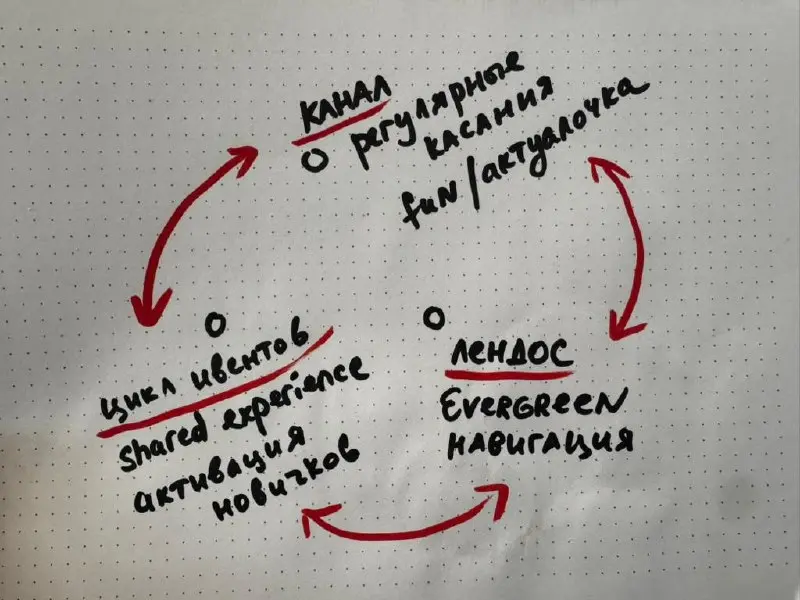 КАНАЛ
регулярные
касания
fuN/актуалочка
цикл ивентов
shared experience
активация
новичков
ЛЕНДОС
EVERGREEN
НАВИГАЦИЯ